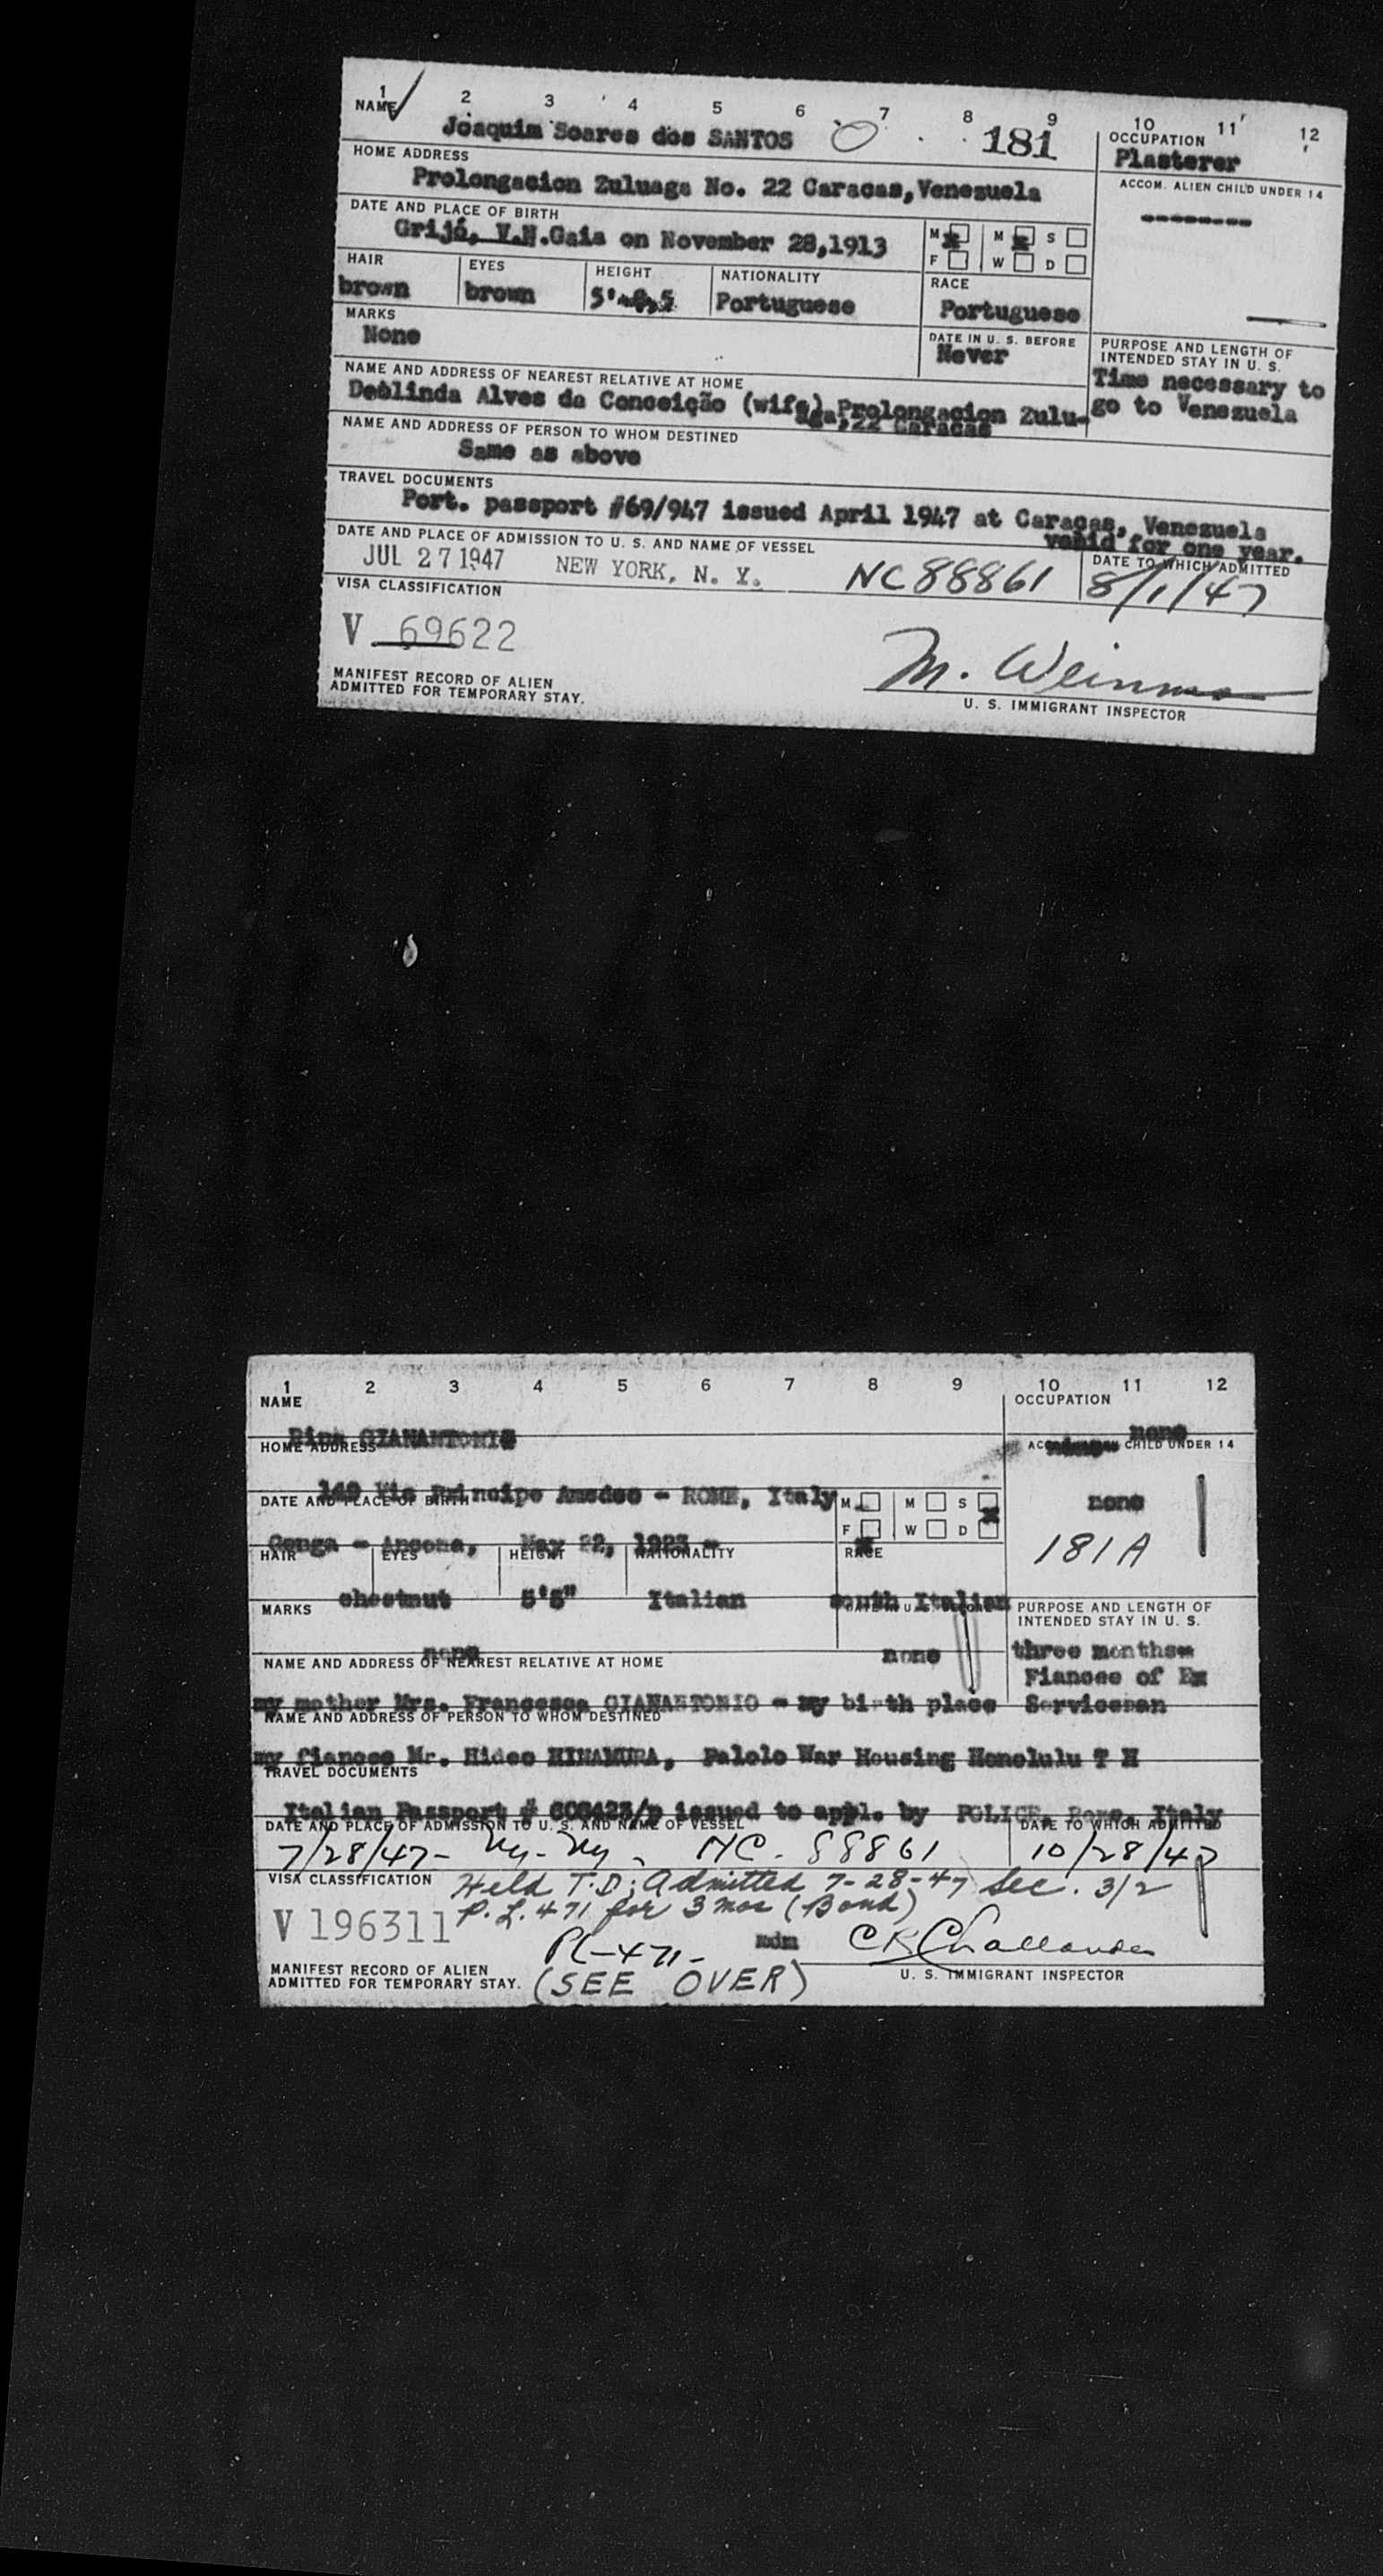 1 2 3 4 5 6 7 8 9 10 11 12
NAME
Joaquim Soares dos SANTOS
181
OCCUPATION
Plasterer
HOME ADDRESS
Prolongacion Zuluaga No. 22 Caracas, Venezuela
ACCOM. ALIEN CHILD UNDER 14
--------
DATE AND PLACE OF BIRTH
Grijó, V.N.Gaia on November 28,1913
M M S
F W D
HAIR EYES HEIGHT NATIONALITY RACE
brown brown 5' Portuguese Portuguese
MARKS
None
DATE IN U. S. BEFORE
Never
PURPOSE AND LENGTH OF
INTENDED STAY IN U. S.
Time necessary to
go to Venezuela
NAME AND ADDRESS OF NEAREST RELATIVE AT HOME
Deolinda Alves da Conceição (wife) Prolongacion Zulu-
aga, 22 Caracas
NAME AND ADDRESS OF PERSON TO WHOM DESTINED
Same as above
TRAVEL DOCUMENTS
Port. passport #69/947 issued April 1947 at Caracas, Venezuela
valid for one year.
DATE AND PLACE OF ADMISSION TO U. S. AND NAME OF VESSEL
DATE TO WHICH ADMITTED
JUL 27 1947 NEW YORK, N. Y. NC 88861 8/1/47
VISA CLASSIFICATION
V 69622
M. Weinman
MANIFEST RECORD OF ALIEN
ADMITTED FOR TEMPORARY STAY.
U. S. IMMIGRANT INSPECTOR
1 2 3 4 5 6 7 8 9 10 11 12
NAME
OCCUPATION
GIANANTONIO
none
HOME ADDRESS
CHILD UNDER 14
149 Via Principe Amedeo - ROME, Italy
none
DATE AND PLACE OF BIRTH
M M S
F W D
Genga - Ancona, May 22, 1923 -
181A
HAIR EYES HEIGHT NATIONALITY RACE
chestnut 5'5" Italian south Italian
MARKS
PURPOSE AND LENGTH OF
INTENDED STAY IN U. S.
none none
three months-
Fiancee of Ex
Serviceman
NAME AND ADDRESS OF NEAREST RELATIVE AT HOME
my mother Mrs. Francesca GIANANTONIO - my birth place
NAME AND ADDRESS OF PERSON TO WHOM DESTINED
my fiancee Mr. Hideo HINAMURA, Palolo War Housing Honolulu T H
TRAVEL DOCUMENTS
Italian Passport # 608423/p issued to appl. by POLICE, Rome, Italy
DATE AND PLACE OF ADMISSION TO U. S. AND NAME OF VESSEL
DATE TO WHICH ADMITTED
7/28/47- Ny- Ny - NC. 88861 10/28/47
VISA CLASSIFICATION
Held T.D; Admitted 7-28-47 Sec. 3/2
P. L. 471 for 3 mos (Bond)
V 196311
PL-471-
mdm
MANIFEST RECORD OF ALIEN
ADMITTED FOR TEMPORARY STAY.
(SEE OVER)
U. S. IMMIGRANT INSPECTOR